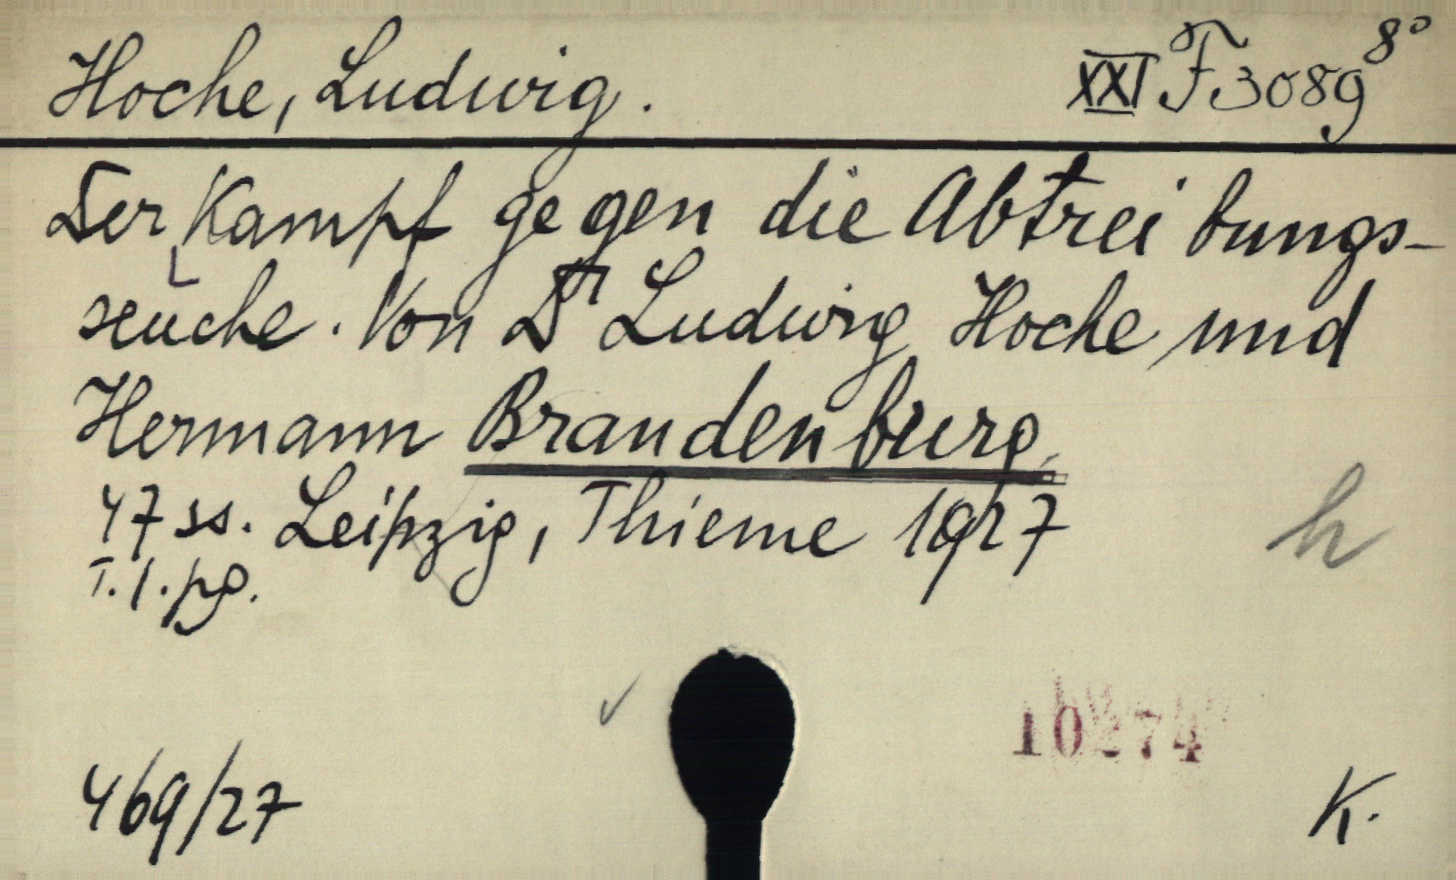 Hoche, Ludwig. XXI F 3089 8°
Der Kampf gegen die Abtreibungs-
seuche. Von Dr Ludwig Hoche und
Hermann Brandenburg.
47 ss. Leipzig, Thieme 1927
h
T. 1. pg.
10274
469/27
K.